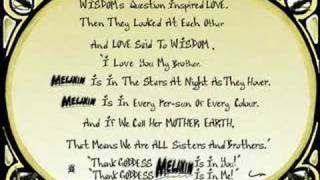 WISDOMs Question Inspired LOVE.
Then They Looked At Each Other
And LOVE Said To WISDOM,
"I Love You My Brother.
MELANIN Is In The Stars At Night As They Hover.
MELANIN Is In Every Per-sun Or Every Colour.
And If We Call Her MOTHER EARTH,
That Means We Are ALL Sisters And Brothers."
"Thank GODDESS MELANIN Is In You!"
"Thank GODDESS MELANIN Is In Me!"